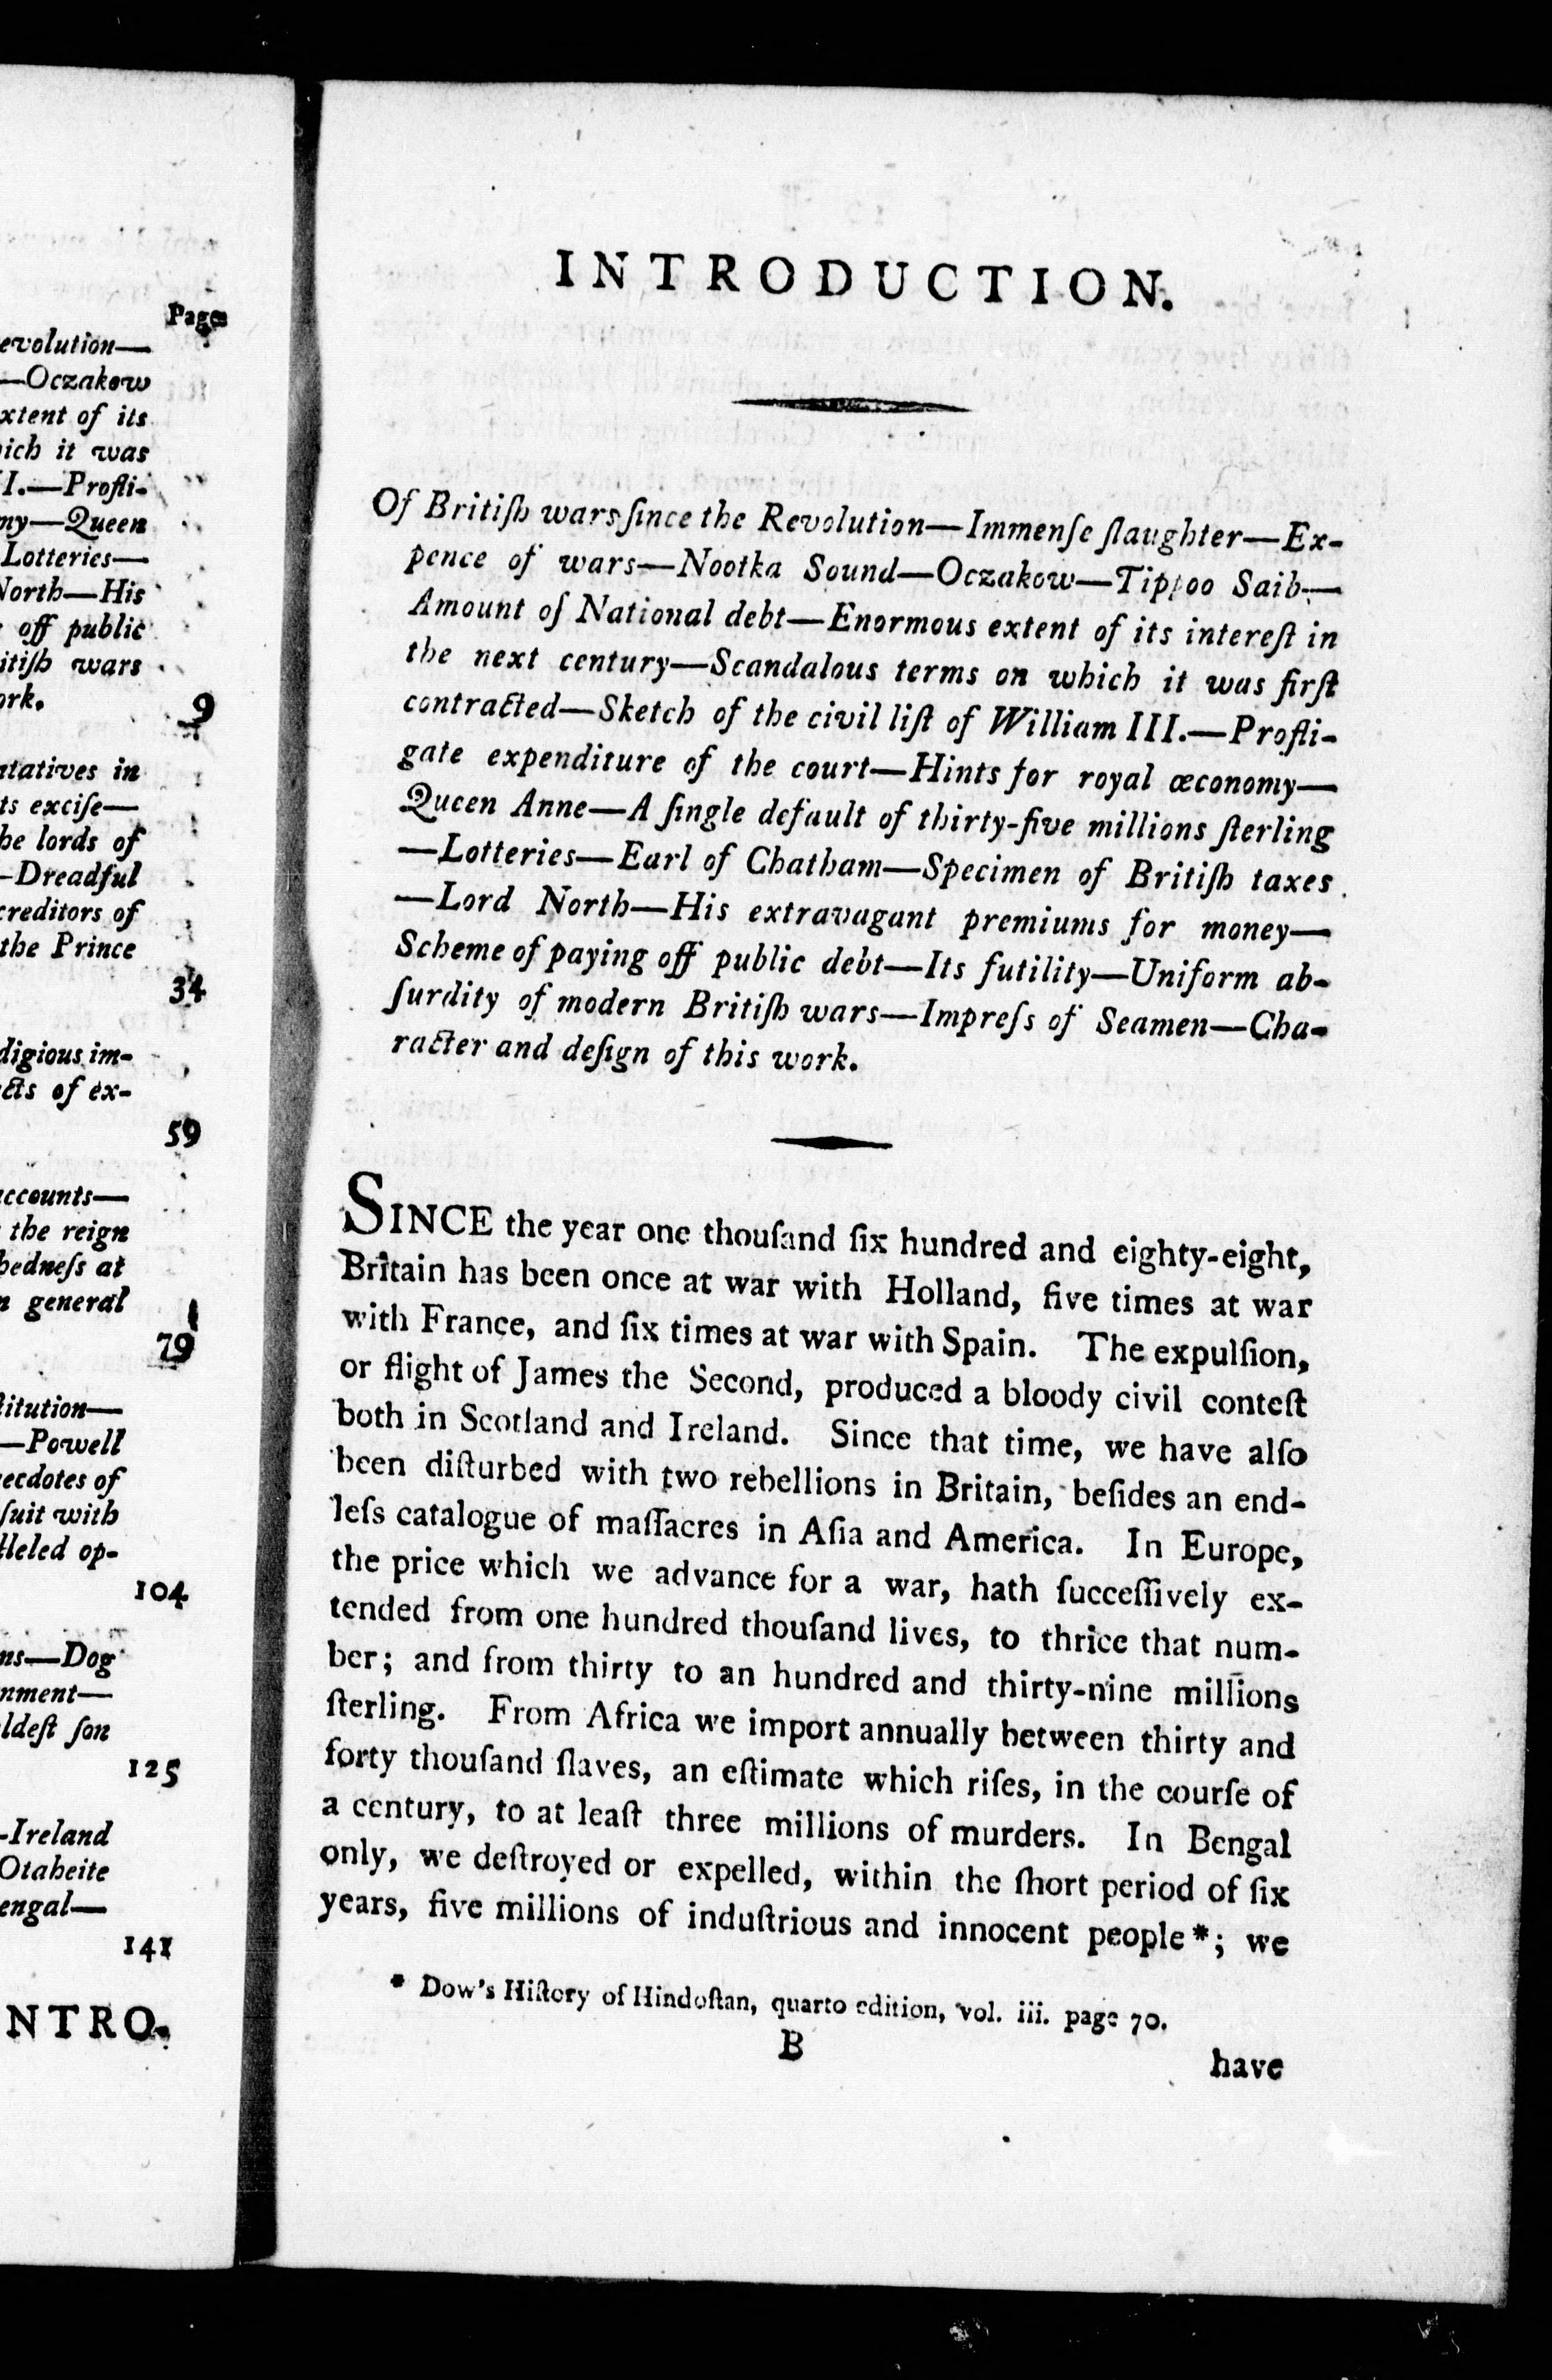 Pages
evolution—
—Oczakow
xtent of its
ich it was
I.—Profli-
my—Queen
Lotteries—
North—His
off public
itiſh wars
ork. 9
ntatives in
ts exciſe—
he lords of
—Dreadful
creditors of
the Prince
34
digious im-
cts of ex-
59
accounts—
the reign
hedneſs at
n general
79
titution—
—Powell
ecdotes of
ſuit with
lleled op-
104
ns—Dog
nment—
ldeſt ſon
125
-Ireland
Otaheite
engal—
141
NTRO.
INTRODUCTION.
Of Britiſh wars ſince the Revolution—Immenſe ſlaughter—Ex-
pence of wars—Nootka Sound—Oczakow—Tippoo Saib—
Amount of National debt—Enormous extent of its intereſt in
the next century—Scandalous terms on which it was firſt
contracted—Sketch of the civil liſt of William III.—Profli-
gate expenditure of the court—Hints for royal œconomy—
Queen Anne—A ſingle default of thirty-five millions ſterling
—Lotteries—Earl of Chatham—Specimen of Britiſh taxes
—Lord North—His extravagant premiums for money—
Scheme of paying off public debt—Its futility—Uniform ab-
ſurdity of modern Britiſh wars—Impreſs of Seamen—Cha-
racter and deſign of this work.
SINCE the year one thouſand ſix hundred and eighty-eight,
Britain has been once at war with Holland, five times at war
with France, and ſix times at war with Spain. The expulſion,
or flight of James the Second, produced a bloody civil conteſt
both in Scotland and Ireland. Since that time, we have alſo
been diſturbed with two rebellions in Britain, beſides an end-
leſs catalogue of maſſacres in Aſia and America. In Europe,
the price which we advance for a war, hath ſucceſſively ex-
tended from one hundred thouſand lives, to thrice that num-
ber; and from thirty to an hundred and thirty-nine millions
ſterling. From Africa we import annually between thirty and
forty thouſand ſlaves, an eſtimate which riſes, in the courſe of
a century, to at leaſt three millions of murders. In Bengal
only, we deſtroyed or expelled, within the ſhort period of ſix
years, five millions of induſtrious and innocent people*; we
* Dow's Hiſtory of Hindoſtan, quarto edition, vol. iii. page 70.
B
have